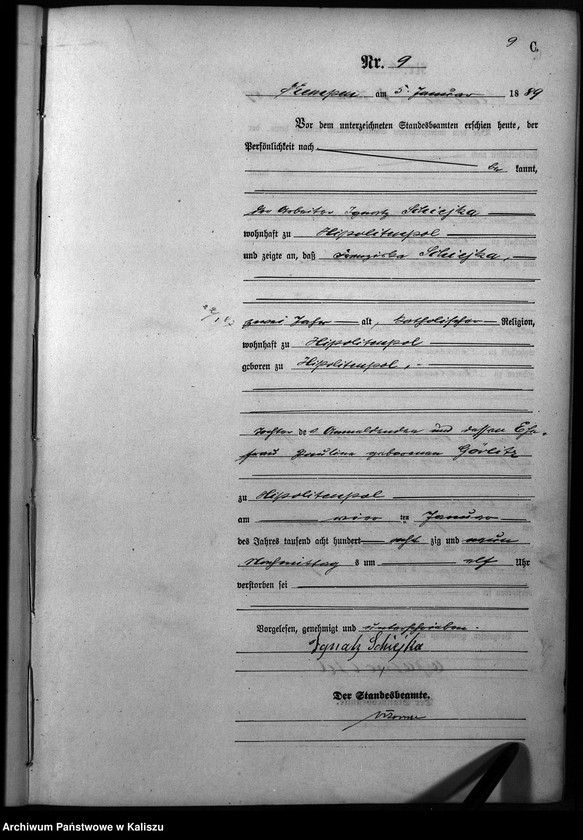 9 C.
Nr. 9
am 5. Januar 1889
Vor dem unterzeichneten Standesbeamten erschien heute, der
Persönlichkeit nach
be kannt,
der Arbeiter Ignatz Schiejka
wohnhaft zu Hipolitenpol
und zeigte an, daß Franziska Schiejka,
zwei Jahr alt, katholischer Religion,
wohnhaft zu Hipolitenpol
geboren zu Hipolitenpol,
Tochter des Anmeldenden und dessen Ehe-
frau Paulina geborenen Görlitz
zu Hipolitenpol
am vier ten Januar
des Jahres tausend acht hundert acht zig und neun
Nachmittag s um elf Uhr
verstorben sei
Vorgelesen, genehmigt und unterschrieben.
Ignatz Schiejka
Der Standesbeamte.
Archiwum Państwowe w Kaliszu